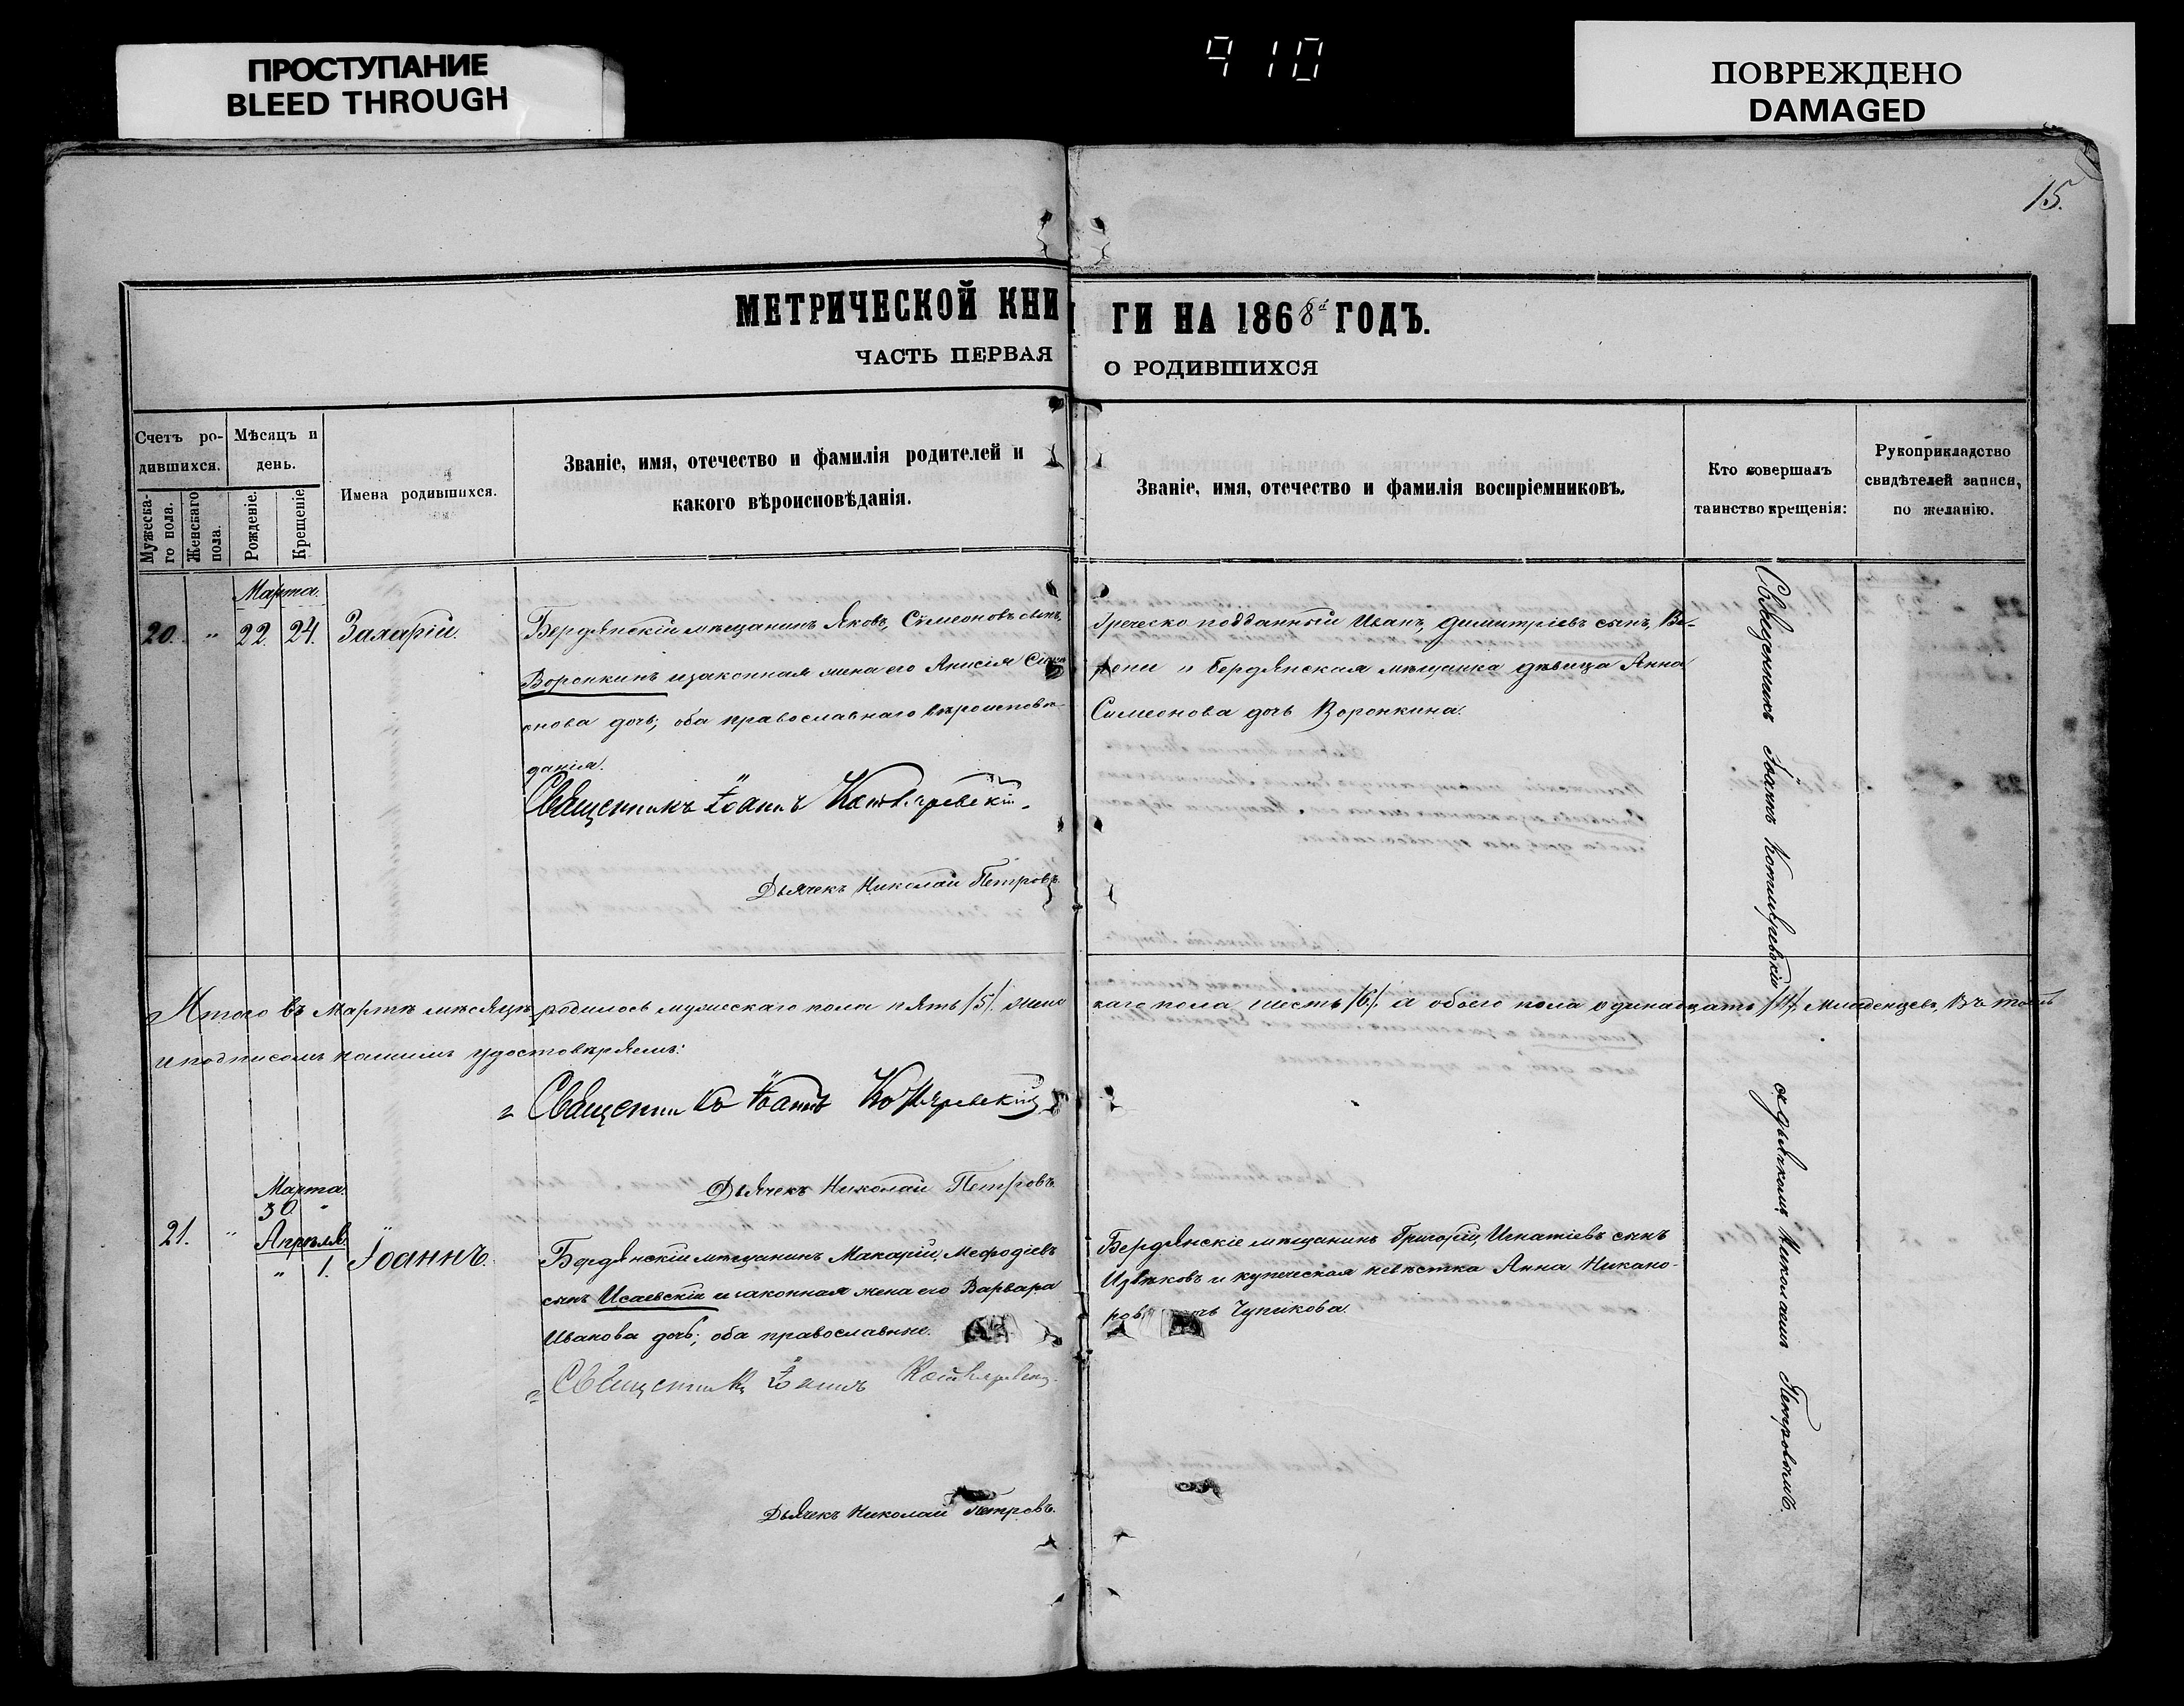 ПРОСТУПАНИЕ
BLEED THROUGH
910
ПОВРЕЖДЕНО
DAMAGED
15.
МЕТРИЧЕСКОЙ КНИГИ НА 1868й ГОДЪ.
ЧАСТЬ ПЕРВАЯ О РОДИВШИХСЯ
Счетъ родившихся.
Мужескаго пола.
Женскаго пола.
Мѣсяцъ и день.
Рожденіе.
Крещеніе.
Имена родившихся.
Званіе, имя, отечество и фамилія родителей и
какого вѣроисповѣданія.
Званіе, имя, отечество и фамилія воспріемниковъ.
Кто совершалъ
таинство крещенія:
Рукоприкладство
свидѣтелей записи,
по желанію.
Марта.
20. " 22. 24. Захарій.
Бердянскій мѣщанинъ Яковъ, Симеоновъ сынъ,
Воронкинъ и законная жена его Анисія
онова дочь; оба православнаго вѣроисповѣ-
данія.
Священникъ Іоаннъ Котляревскій
Дьячекъ Николай Петровъ.
Греческо подданный Иванъ, Димитріевъ сынъ, Ве-
и бердянская мѣщанка дѣвица Анна
Симеонова дочь Воронкина.
Священникъ Іоаннъ Котляревскій
съ дьячкомъ Николаемъ Петровымъ.
Итого въ Мартѣ мѣсяцѣ родилось мужескаго пола пять /5/. женскаго пола шесть /6/. а обоего пола одинадцать /11/. Младенцевъ, Въ томъ
и подписомъ нашимъ удостовѣряемъ:
Священникъ Іоаннъ Котляревскій
Дьячекъ Николай Петровъ
Марта.
30. "
Апрѣля.
21. " " 1. Іоаннъ.
Бердянскій мѣщанинъ Макарій, Меѳодіевъ
сынъ Исаевскій и законная жена его Варвара
Иванова дочь; оба православные.
Священникъ Іоаннъ Котляревскій
Дьячекъ Николай Петровъ.
Бердянскіе мѣщанинъ Григорій, Игнатіевъ сынъ
Извѣковъ и купеческая невѣстка Анна Никано-
ров Чупикова.